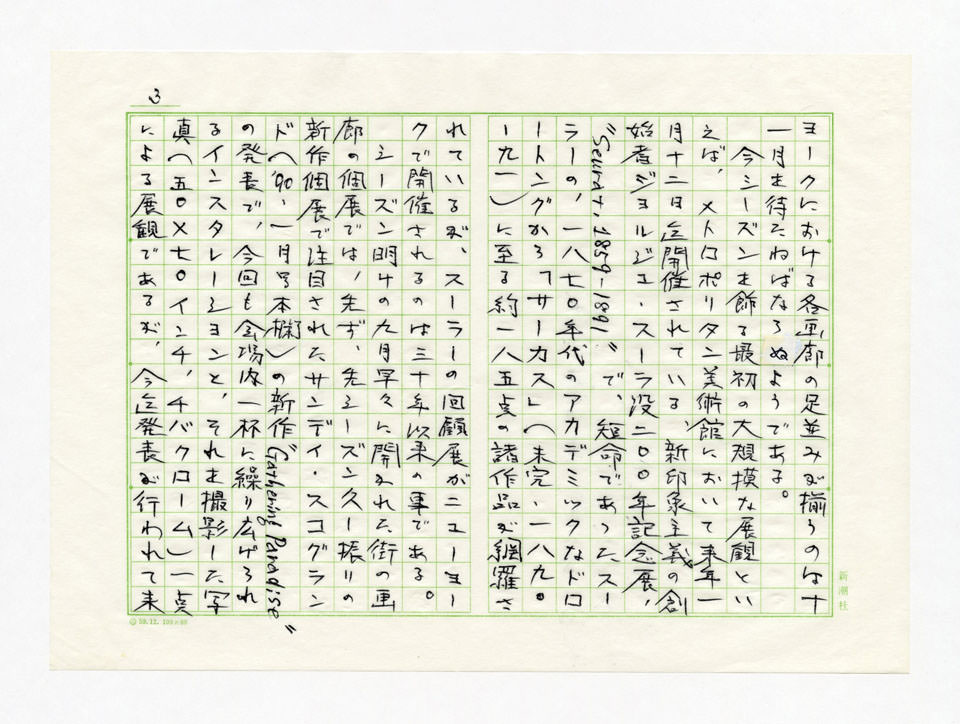 3
ヨークにおける各画廊の足並みが揃うのは十
一月を待たねばならぬようである。
今シーズンを飾る最初の大規模な展観とい
えば、メトロポリタン美術館において来年一
月十二日迄開催されている、新印象主義の創
始者ジョルジュ・スーラ没二〇〇年記念展、
"Seurat, 1859-1891" で、短命であったスー
ラーの、一八七〇年代のアカデミックなドロ
ートングから「サーカス」(未完・一八九〇
ー九一)に至る約一八五点の諸作品が網羅さ
れているが、スーラーの回顧展がニューヨー
クで開催されるのは三十年以来の事である。
シーズン明けの九月早々に開かれた街の画
廊の個展では、先ず、先シーズン久し振りの
新作個展で注目されたサンディ・スコグラン
ド(’90、一月号本欄)の新作 "Gathering Paradise"
の発表で、今回も会場内一杯に繰り広げられ
るインスタレーションと、それを撮影した写
真(五〇×七〇インチ、チバクローム)一点
による展観であるが、今迄発表が行われて来
新潮社
59.12. 100×80